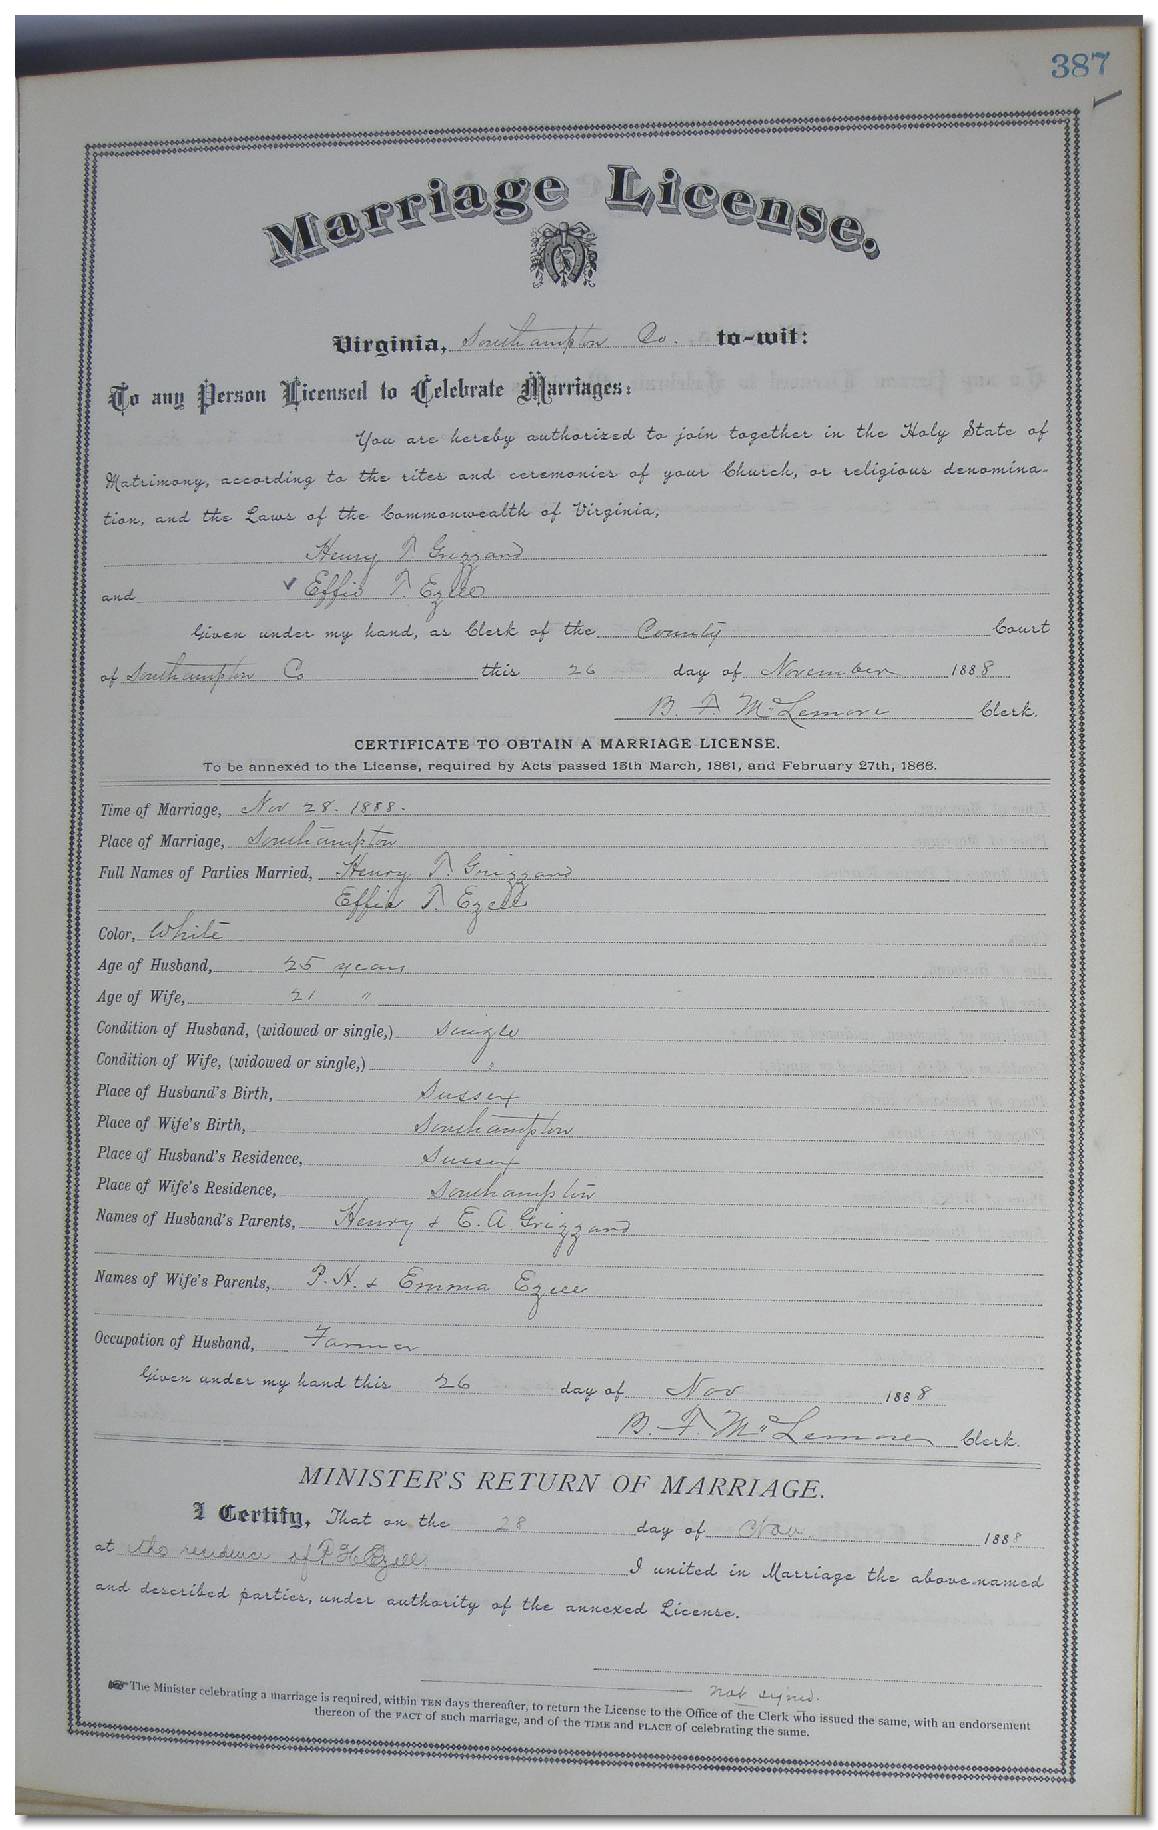 387
Marriage License.
Virginia, Southampton Co. to-wit:
To any Person Licensed to Celebrate Marriages:
You are hereby authorized to join together in the Holy State of
Matrimony, according to the rites and ceremonies of your Church, or religious denomina-
tion, and the Laws of the Commonwealth of Virginia,
Henry T Grizzard
and Effie T. Ezell
Given under my hand, as Clerk of the County Court
of Southampton Co this 26 day of November 1888
B. F. McLemore Clerk.
CERTIFICATE TO OBTAIN A MARRIAGE LICENSE.
To be annexed to the License, required by Acts passed 15th March, 1861, and February 27th, 1866.
Time of Marriage, Nov 28. 1888.
Place of Marriage, Southampton
Full Names of Parties Married, Henry T. Grizzard
Effie T. Ezell
Color, White
Age of Husband, 25 years
Age of Wife, 21 "
Condition of Husband, (widowed or single,) Single
Condition of Wife, (widowed or single,) "
Place of Husband's Birth, Sussex
Place of Wife's Birth, Southampton
Place of Husband's Residence, Sussex
Place of Wife's Residence, Southampton
Names of Husband's Parents, Henry & E. A Grizzard
Names of Wife's Parents, P. H. & Emma Ezell
Occupation of Husband, Farmer
Given under my hand this 26 day of Nov 1888
B. F. McLemore Clerk.
MINISTER'S RETURN OF MARRIAGE.
I Certify, That on the 28 day of Nov 1888
at the residence of P H Ezell I united in Marriage the above-named
and described parties, under authority of the annexed License.
not signed.
The Minister celebrating a marriage is required, within TEN days thereafter, to return the License to the Office of the Clerk who issued the same, with an endorsement
thereon of the FACT of such marriage, and of the TIME and PLACE of celebrating the same.